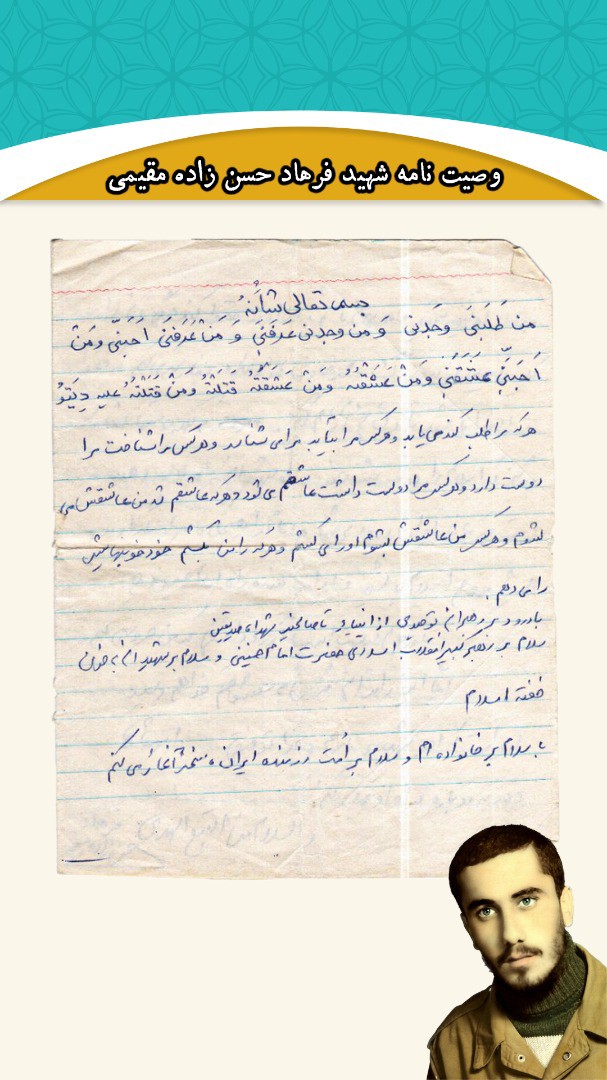 وصیت نامه شهید فرهاد حسن زاده مقیمی
بسمه تعالی شأنه
من طَلَبَنی وَجَدنی وَ من وجدنی عَرَفَنی وَ مَنْ عَرَفَنی اَحَبَنّی وَمَنْ
اَحَبَنّی عَشَقَنی وَمَنْ عَشَقَنی عَشَقْتُهُ وَمَنْ عَشَقْتُهُ قَتَلْتُهُ وَمَنْ قَتَلْتُهُ علیه دِیَتُو
هرکه مرا طلب کند می یابد و هرکس مرا بیابد مرا می شناسد و هرکس مرا شناخت مرا
دوست دارد و هرکس مرا دوست داشت عاشقم می شود و هرکه عاشقم شد من عاشقش می
شوم و هرکس من عاشقش بشوم او را می کشم و هرکه را من بکشم خود خونبهایش
را می دهم.
با درود بر رهبران توحیدی از انبیاء تا صالحین شهداء صدیقین
سلام بر رهبر کبیر انقلاب اسلامی حضرت امام خمینی و سلام بر شهیدان بخون
خفته اسلام
با سلام بر خانواده ام و سلام بر اُمت رزمنده ایران سخنم را آغاز می کنم